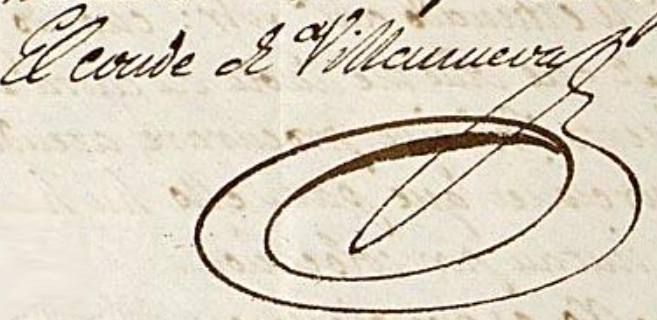 El conde de Villanueva